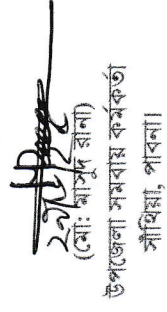 (মোঃ মাসুদ রানা)
উপজেলা সমবায় কর্মকর্তা
সাঁথিয়া, পাবনা।